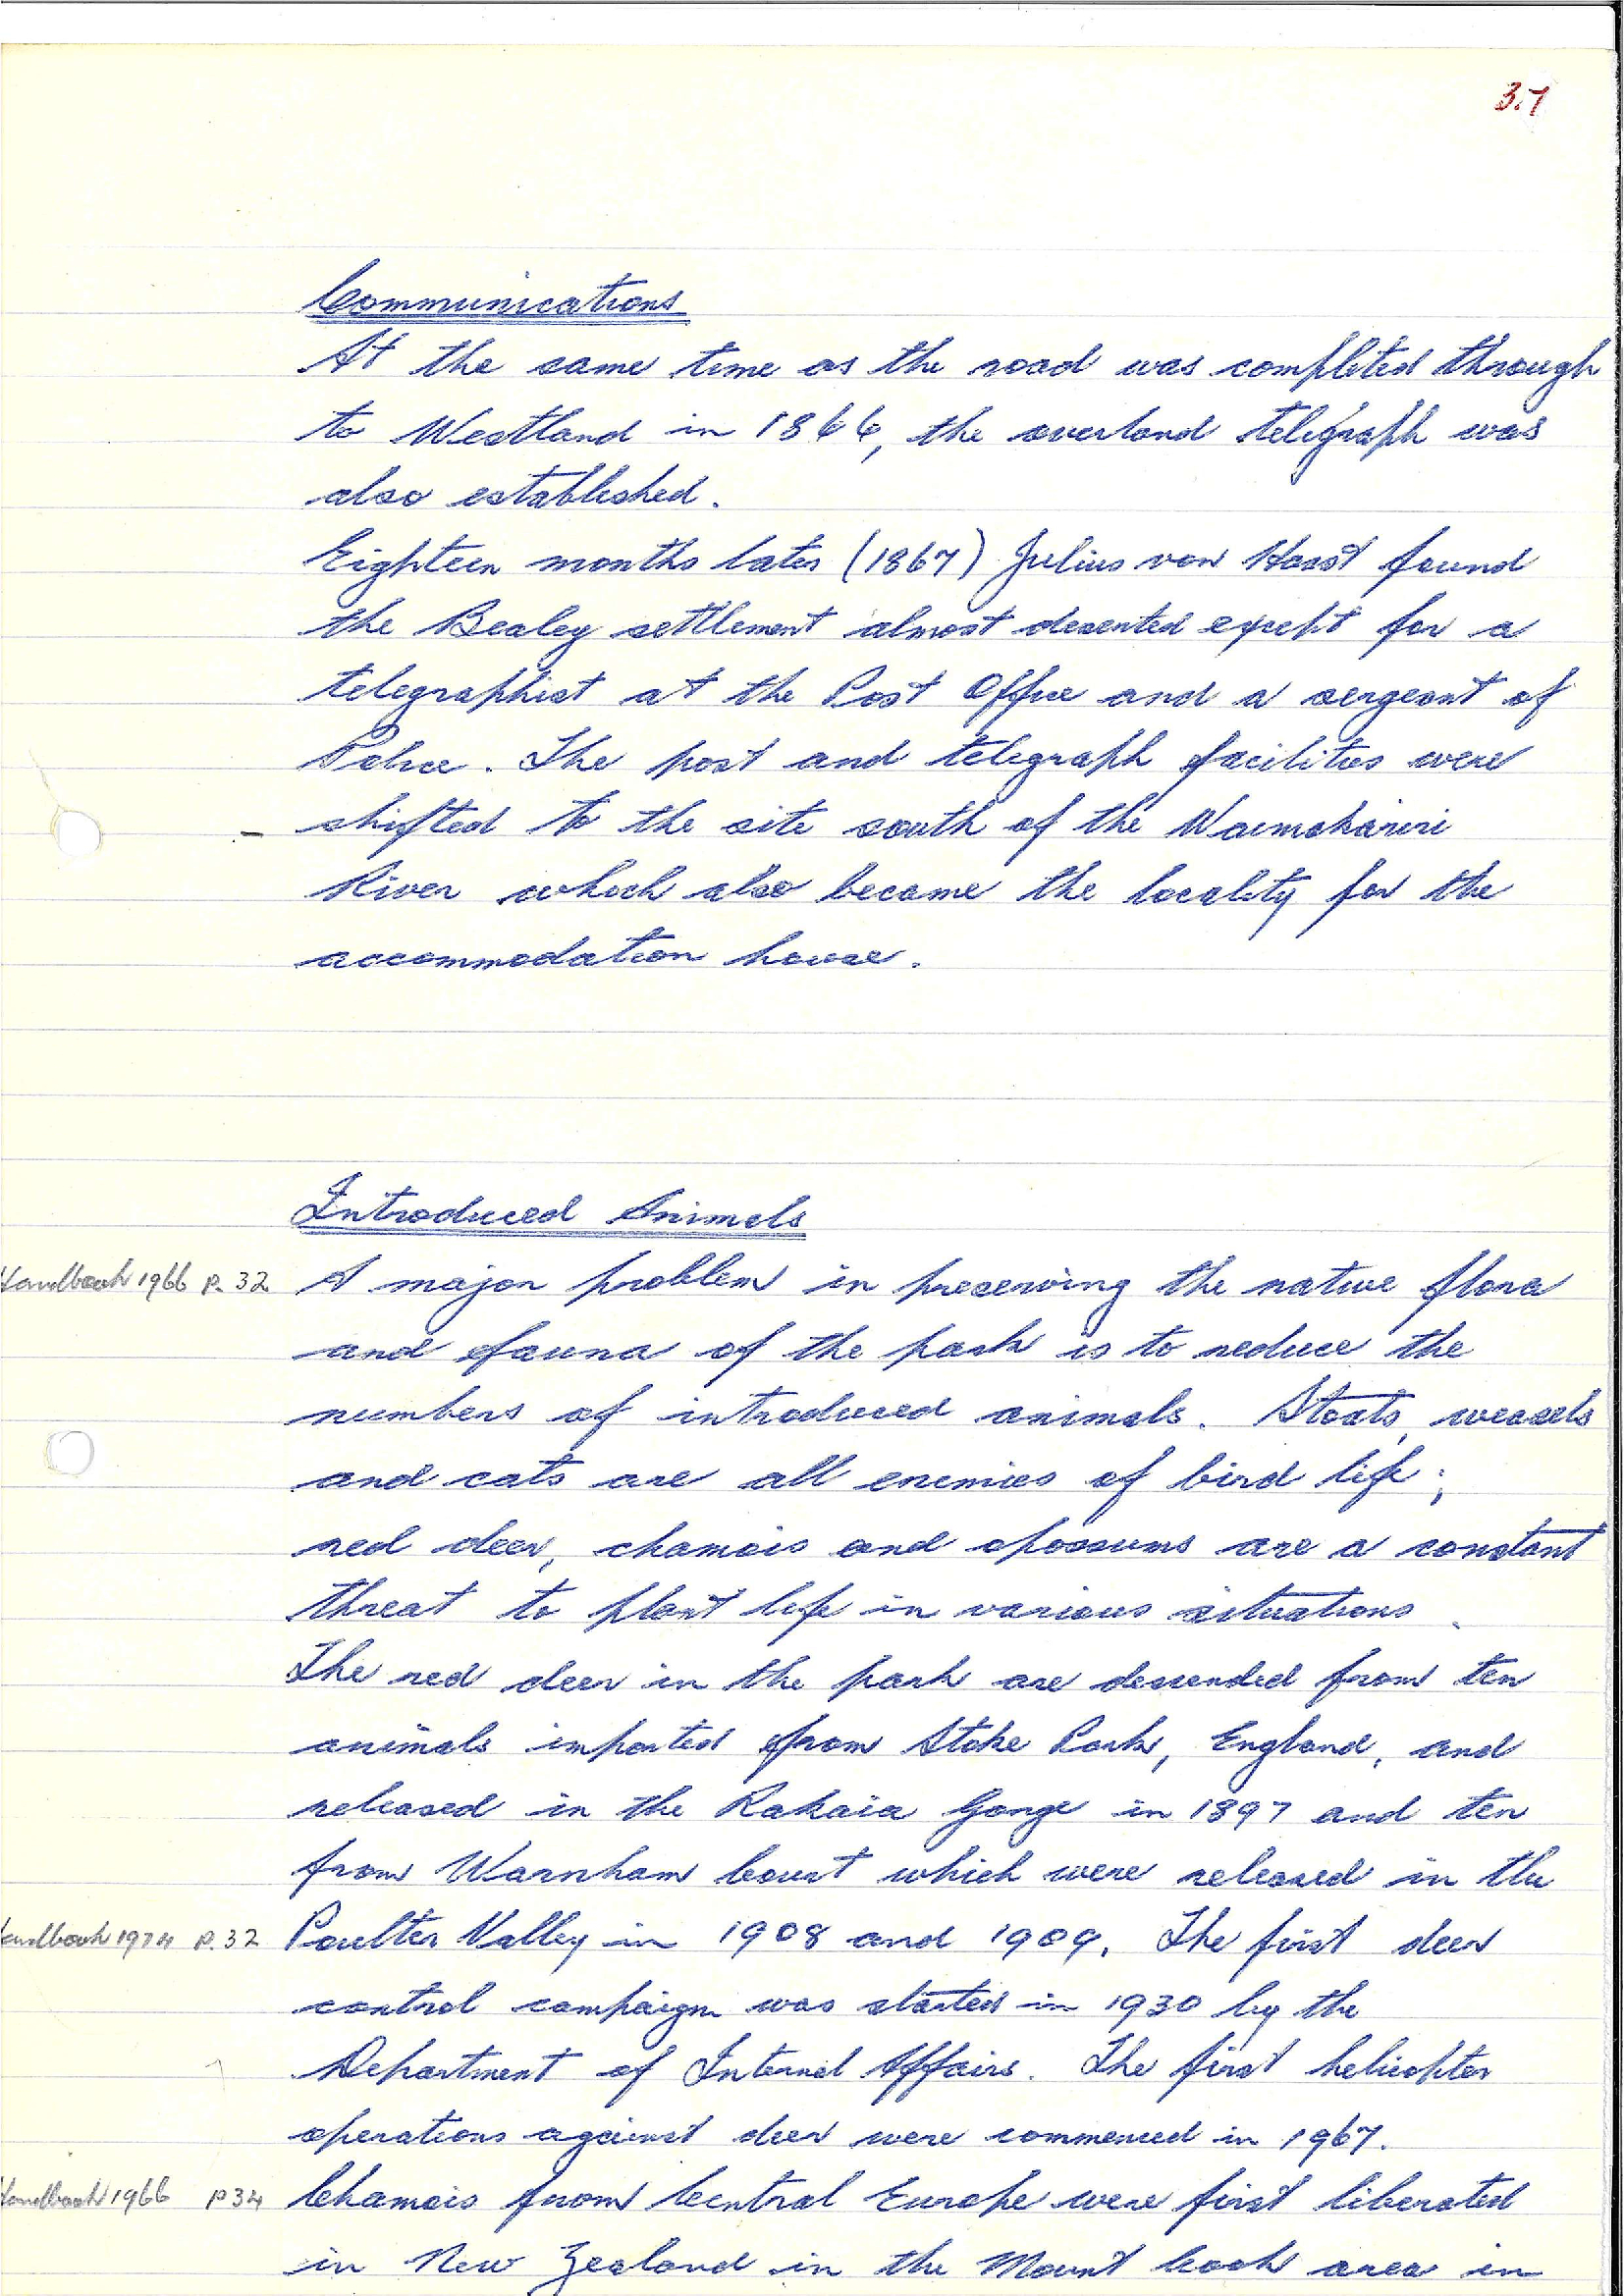 3.7
Communications
At the same time as the road was completed through
to Westland in 1866, the overland telegraph was
also established.
Eighteen months later (1867) Julius von Haast found
the Bealey settlement almost deserted except for a
telegraphist at the Post Office and a sergeant of
Police. The post and telegraph facilities were
- shifted to the site south of the Waimakariri
River which also became the locality for the
accommodation house.
Introduced Animals
Handbook 1966 P. 32 A major problem in preserving the native flora
and fauna of the park is to reduce the
numbers of introduced animals. Stoats, weasels
and cats are all enemies of bird life;
red deer, chamois and opossums are a constant
threat to plant life in various situations.
The red deer in the park are descended from ten
animals imported from Stoke Park, England, and
released in the Rakaia Gorge in 1897 and ten
from Warnham Court which were released in the
Handbook 1974 P. 32 Poulter Valley in 1908 and 1909. The first deer
control campaign was started in 1930 by the
Department of Internal Affairs. The first helicopter
operations against deer were commenced in 1967.
Handbook 1966 P 34 Chamois from Central Europe were first liberated
in New Zealand in the Mount Cook area in